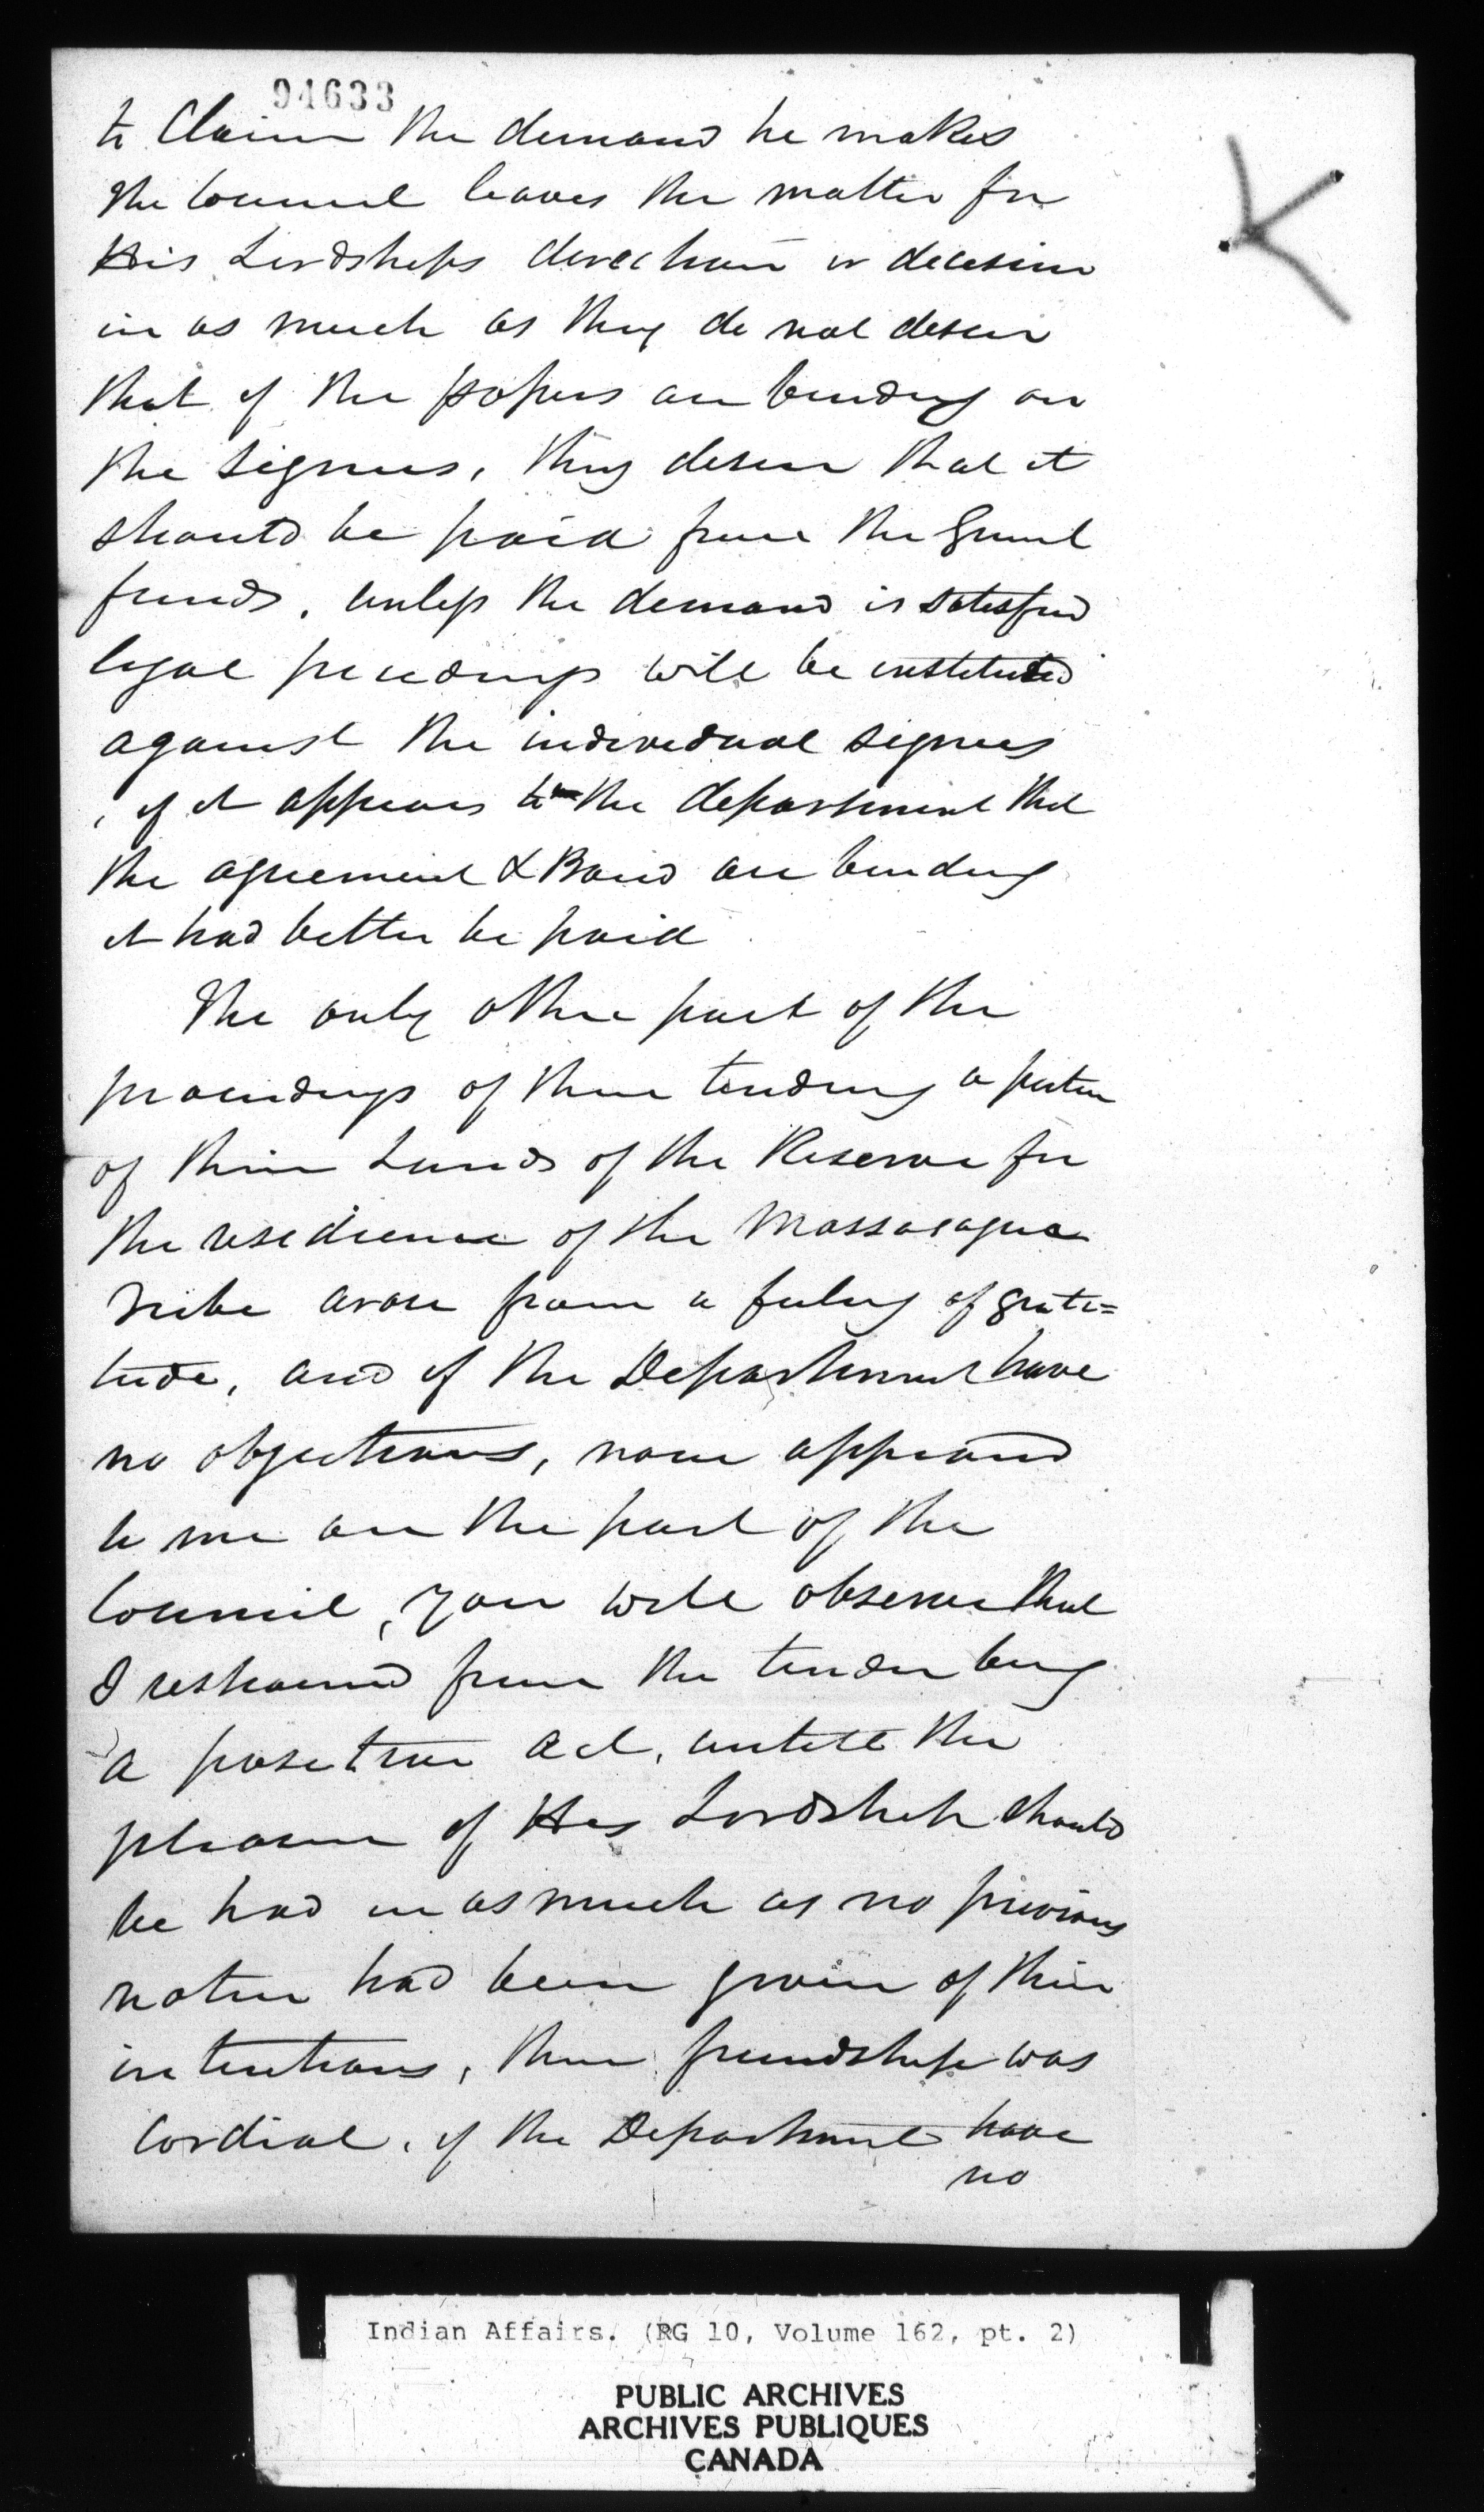 94633
to Claim the demand he makes
The Council leaves the matter for
His Lordships direction or decision
in as much as they do not desire
that if the papers are binding on
the Signees, they desire that it
should be paid from the General
funds, unless the demand is satisfied
legal proceedings will be instituted
against the individual signees
, if it appears to the department that
the agreement & Bond are binding
it had better be paid
The only other part of the
proceedings of them tendering a portion
of their Lands of the Reserve for
the residience of the Massasagua
Tribe arose from a feeling of grati=
tude, and if the Department have
no objections, none appeared
to me on the part of the
Council, you will observe that
I restrained from the tender being
a positive act, untill the
pleasure of His Lordship should
be had in as much as no previous
notice had been given of their
intentions, their friendship was
Cordial. if the Department have
no
Indian Affairs. (RG 10, Volume 162, pt. 2)
PUBLIC ARCHIVES
ARCHIVES PUBLIQUES
CANADA